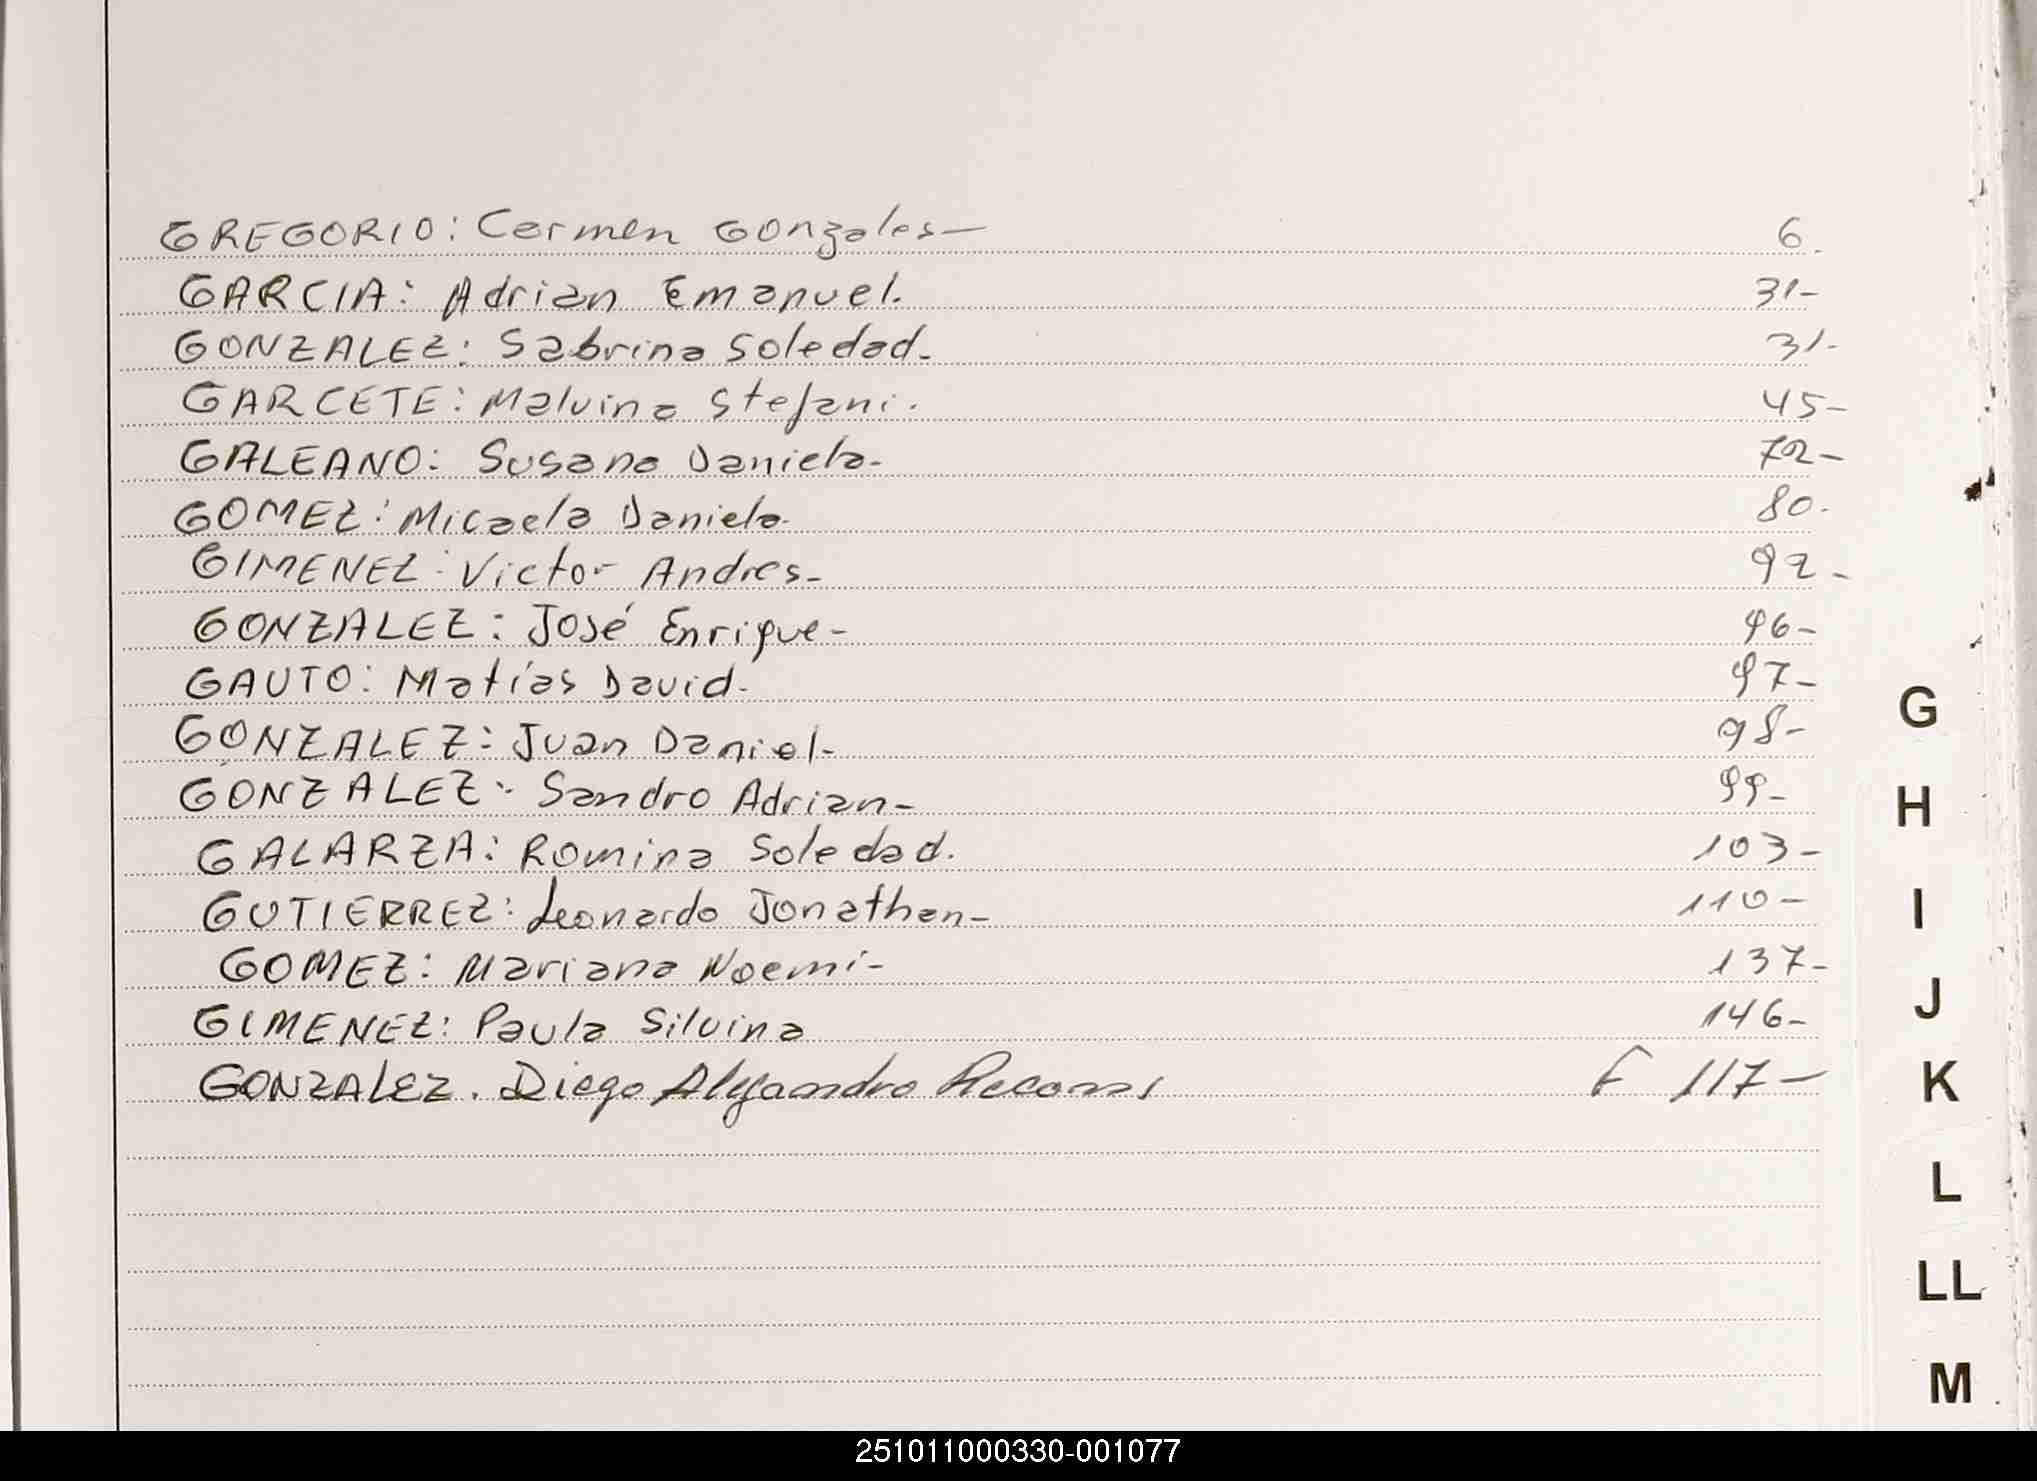 GREGORIO: Carmen Gonzales— 6.
GARCIA: Adrian Emanuel. 31-
GONZALEZ: Sabrina Soledad. 31-
GARCETE: Malvina Stefani. 45-
GALEANO: Susana Daniela- 72-
GOMEZ: Micaela Daniela- 80-
GIMENEZ: Victor Andres- 92-
GONZALEZ: José Enrique- 96-
GAUTO: Matías David- 97-
GONZALEZ: Juan Daniel- 98-
GONZALEZ: Sandro Adrian- 99-
GALARZA: Romina Soledad. 103-
GUTIERREZ: Leonardo Jonathan- 110-
GOMEZ: Mariana Noemi- 137-
GIMENEZ: Paula Silvina 146-
GONZALEZ. Diego Alejandro F 117—
G
H
I
J
K
L
LL
M
251011000330-001077